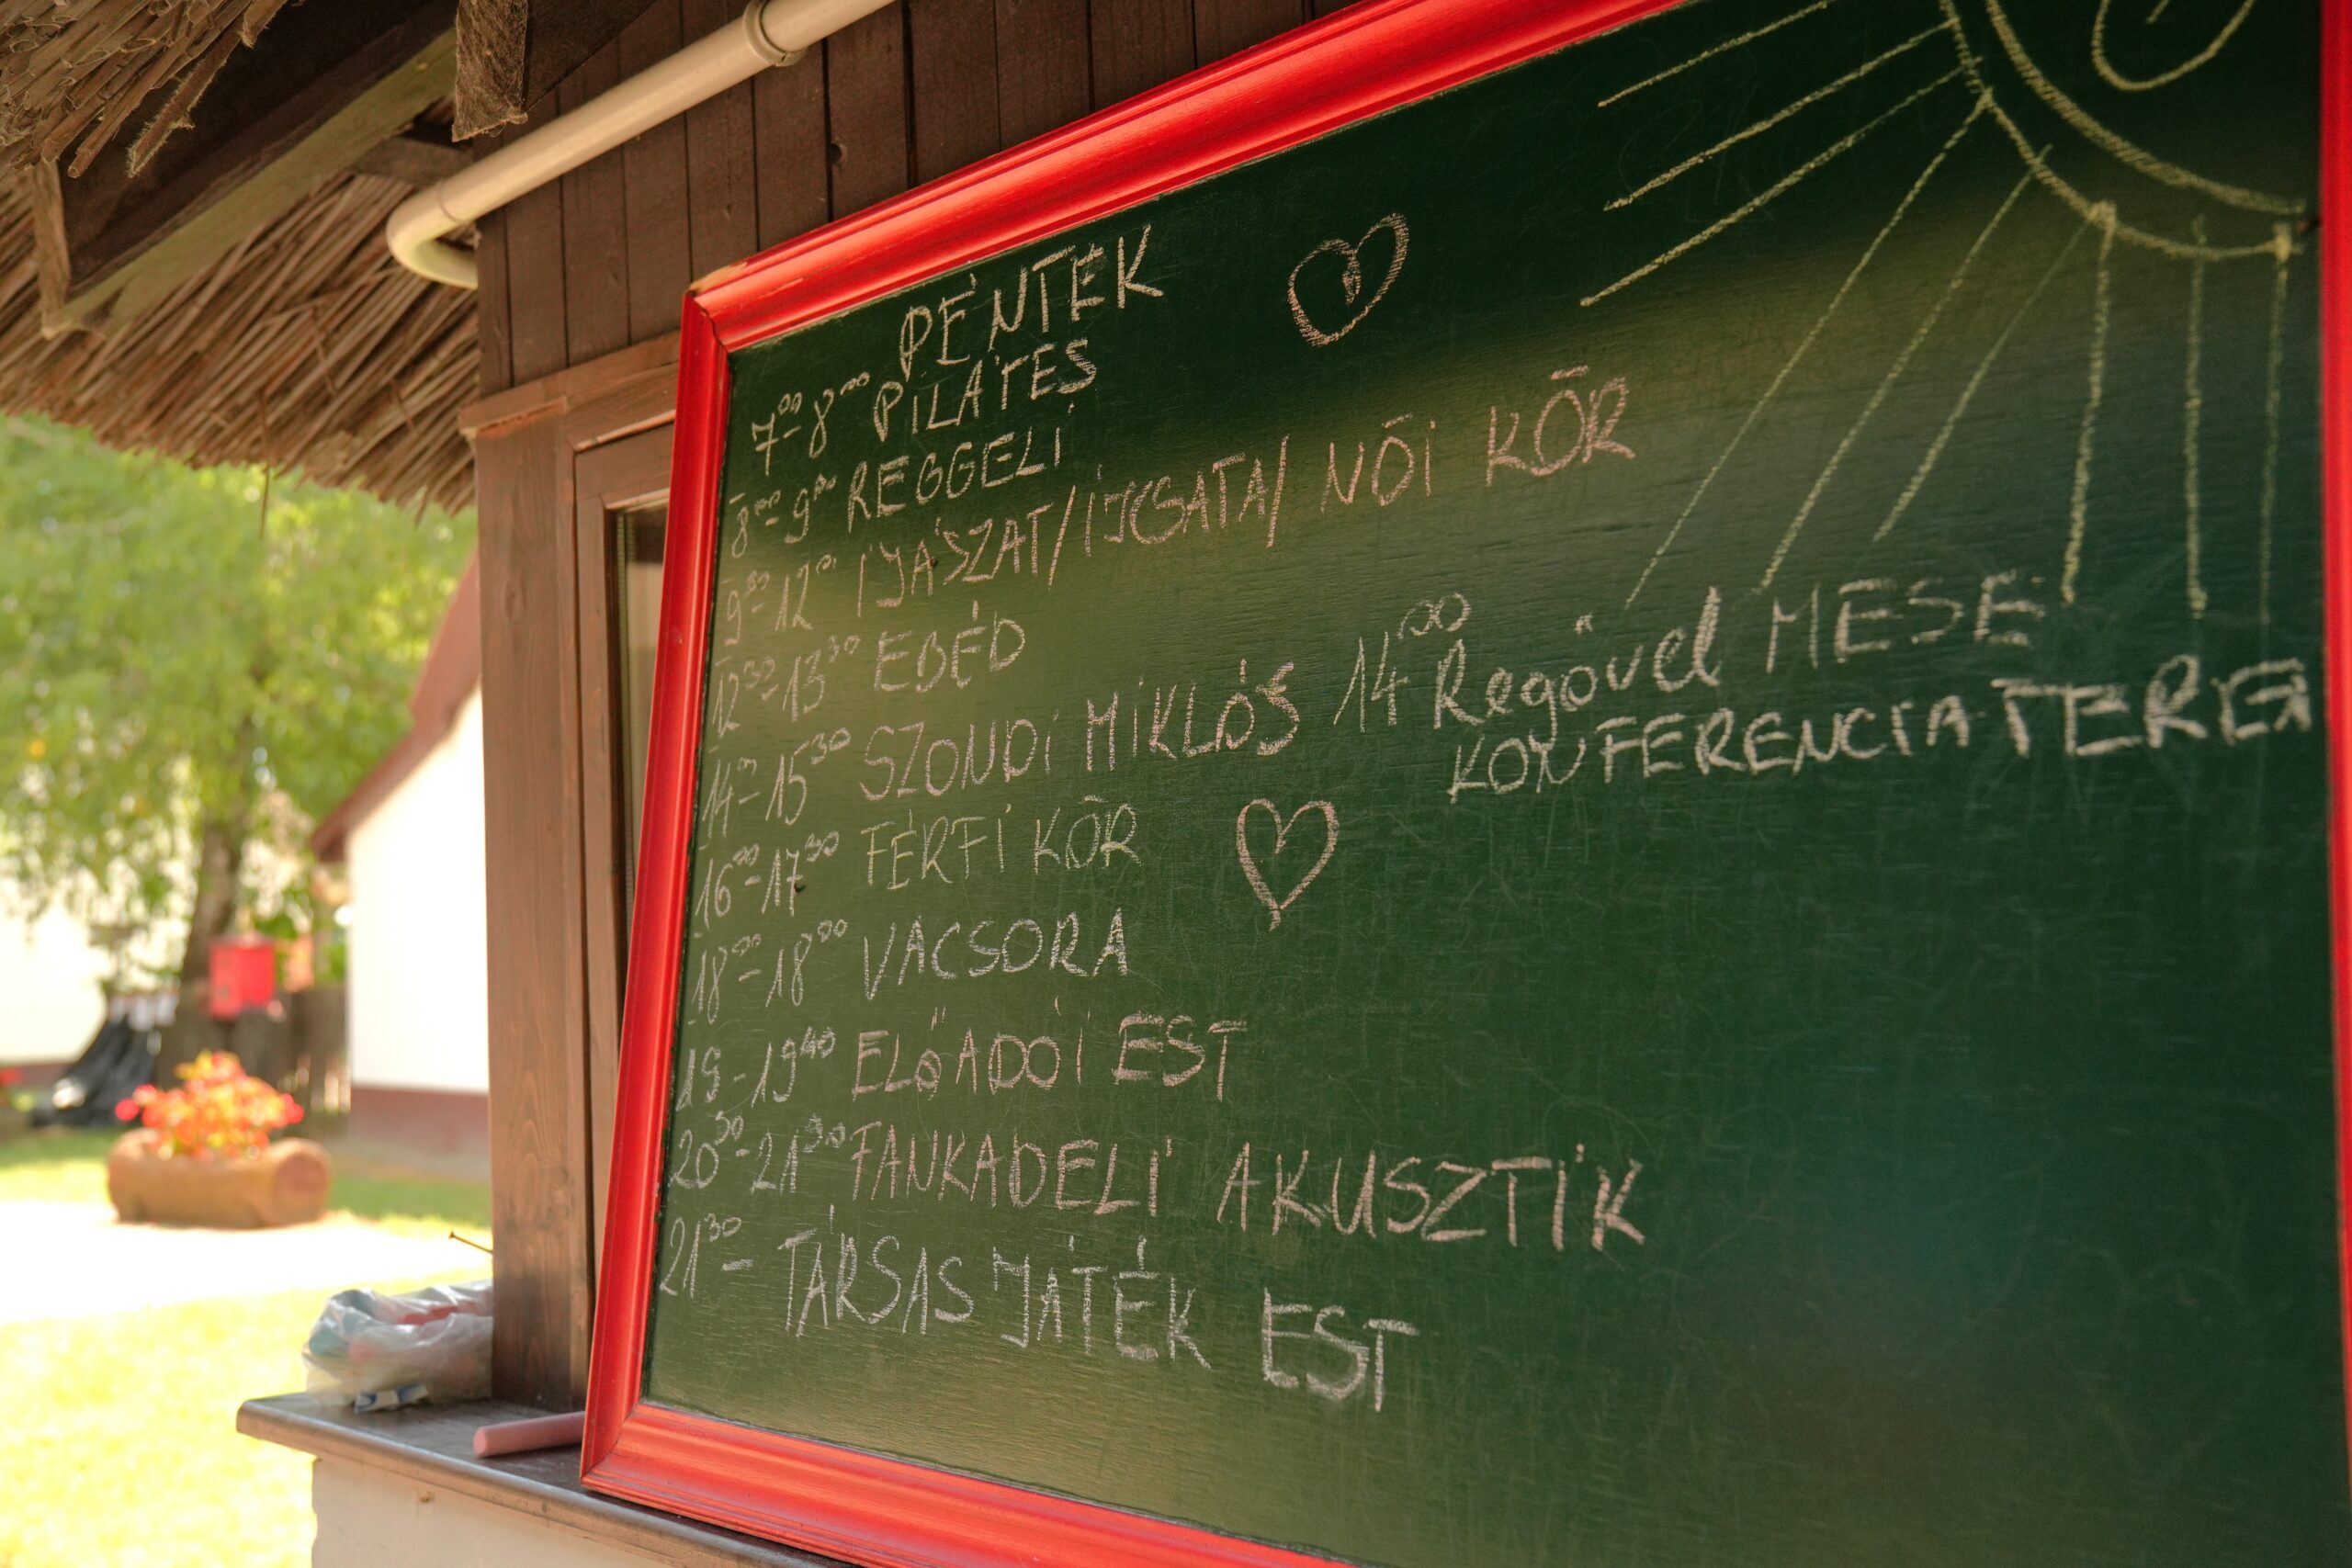 PÉNTEK
7⁰⁰-8⁰⁰ PILATES
8⁰⁰-9⁰⁰ REGGELI
9³⁰-12⁰⁰ ÍJÁSZAT/ÍJCSATA/ NŐI KŌR
12³⁰-13³⁰ EBÉD
14⁰⁰-15³⁰ SZONDI MIKLÓS 14⁰⁰ Regővel MESE
KONFERENCIATEREM
16⁰⁰-17³⁰ FÉRFI KŌR
18⁰⁰-18⁰⁰ VACSORA
19-19⁴⁰ ELŐADÓI EST
20³⁰-21³⁰ FANKADELI AKUSZTIK
21³⁰- TÁRSAS JÁTÉK EST